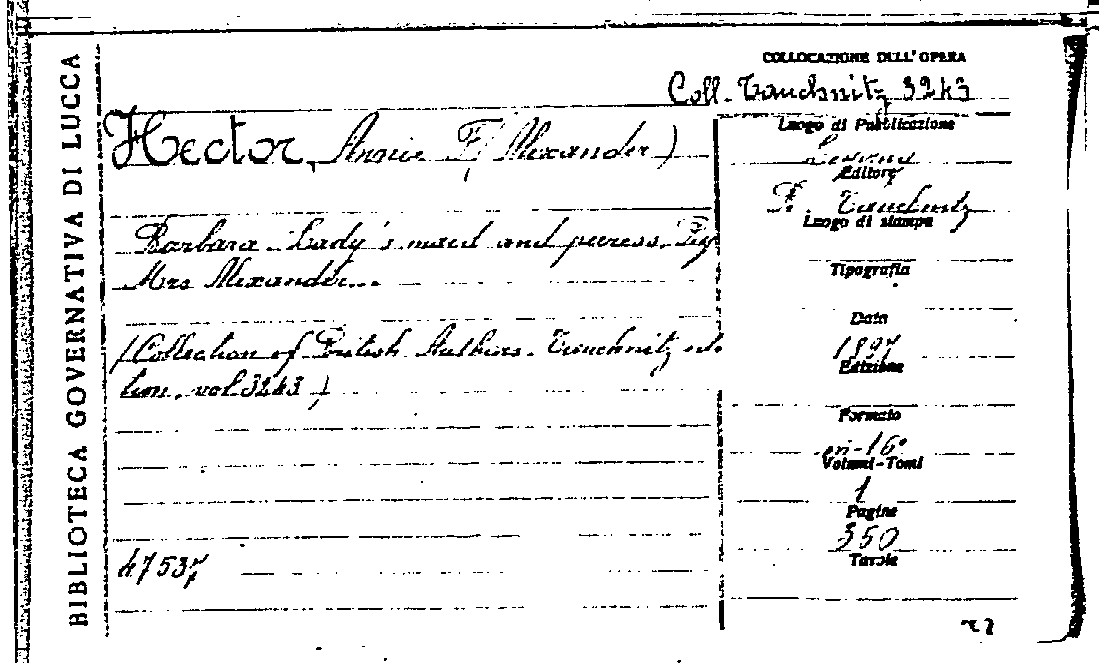 BIBLIOTECA GOVERNATIVA DI LUCCA
COLLOCAZIONE DELL'OPERA
Coll. Tauchnitz 3243
Hector, Annie F. (Alexander)
Barbara. Lady's maid and peeress. By
Mrs Alexander...
(Collection of British Authors. Tauchnitz edi-
tion. vol. 3243)
47537
Luogo di Pubblicazione
Editore
B. Tauchnitz
Luogo di stampa
Tipografia
Data
1897
Edizione
Formato
in-16°
Volumi-Tomi
1
Pagine
350
Tavole